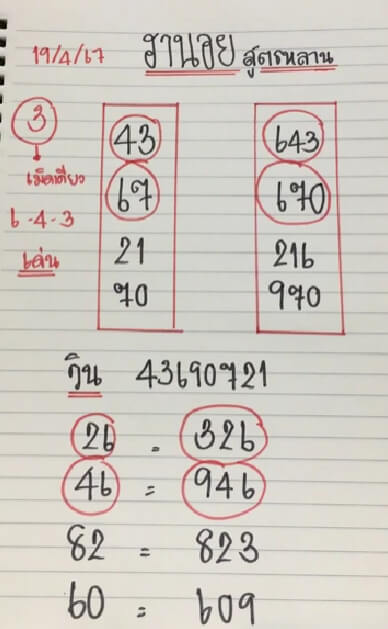 19/4/67 ฮานอย สูตรหลาน
3
เม็ดเดียว
6-4-3
เด่น
43 643
67 670
21 216
70 970
วิน 43690721
26 - 326
46 = 946
82 = 823
60 = 609